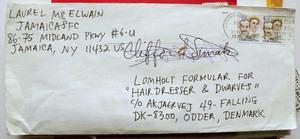 LAUREL McELWAIN
JAMAICA SFC
86-75 MIDLAND PKWY #6-U
JAMAICA, NY 11432 US
LOMHOLT FORMULAR FOR
"HAIRDRESSER & DWARVES"
c/o AKJAERVEJ 49 - FALLING
DK-8300, ODDER, DENMARK